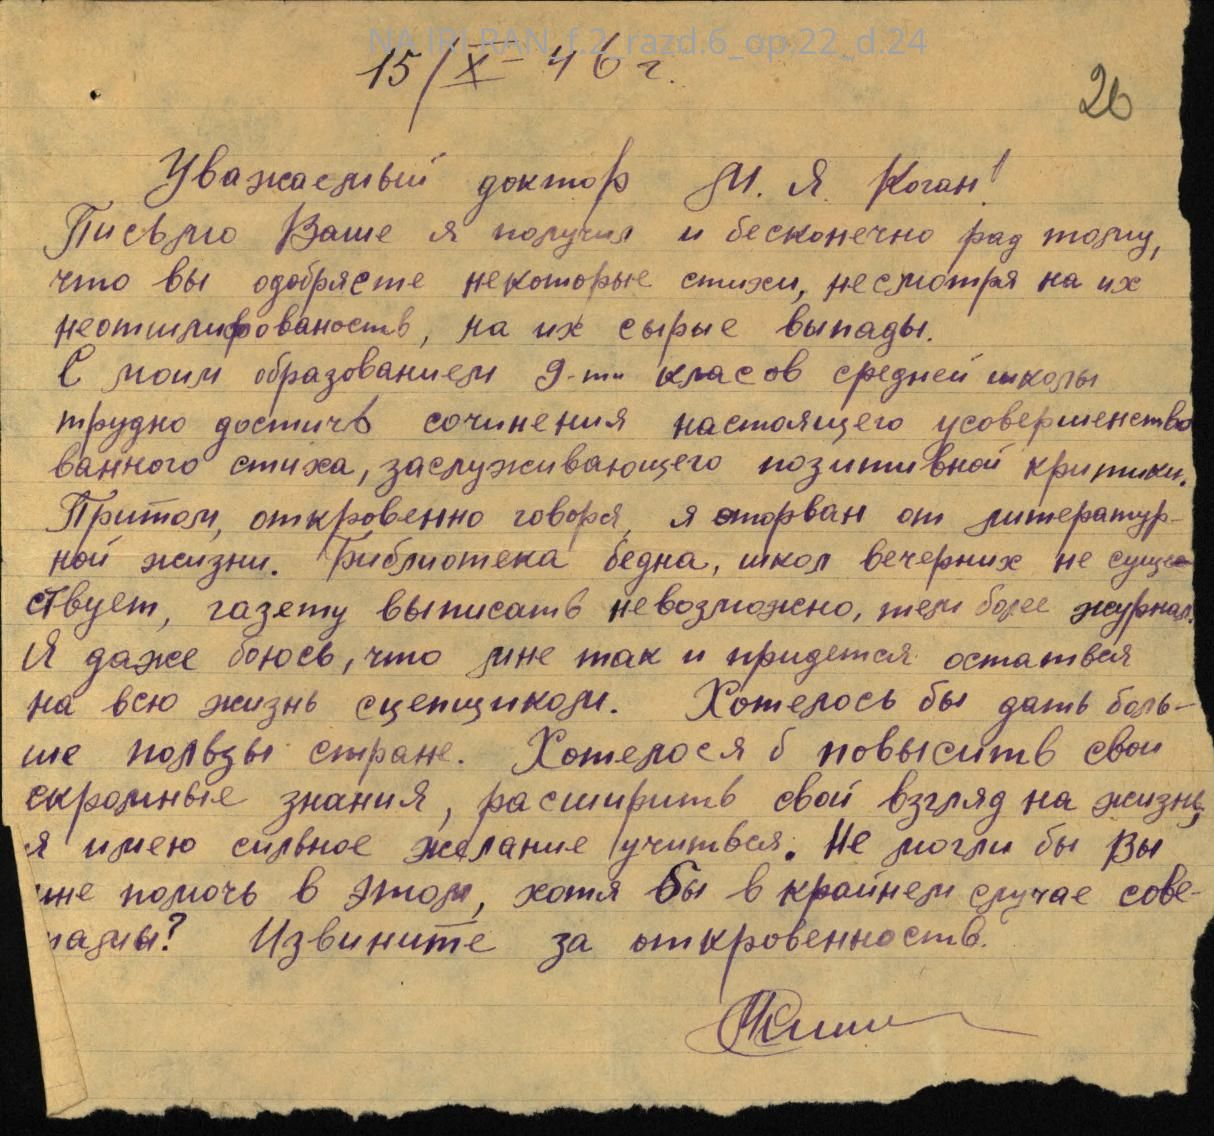 NA IRI RAN_f.2_razd.6_op.22_d.24
15/X-46 г.
26
Уважаемый доктор М. Я. Коган!
Письмо Ваше я получил и бесконечно рад тому,
что вы одобряете некоторые стихи, несмотря на их
неотшлифованость, на их сырые выпады.
С моим образованием 9-ти класов средней школы
трудно достичь сочинения настоящего усовершенство
ванного стиха, заслуживающего позитивной критики.
Притом, откровенно говоря, я оторван от литератур-
ной жизни. Библиотека бедна, школ вечерних не суще-
ствует, газету выписать невозможно, тем более журнал.
Я даже боюсь, что мне так и придется остаться
на всю жизнь сцепщиком. Хотелось бы дать боль-
ше пользы стране. Хотелося б повысить свои
скромные знания, расширить свой взгляд на жизнь,
я имею сильное желание учиться. Не могли бы Вы
мне помочь в этом, хотя бы в крайнем случае сове-
тами? Извините за откровенность.